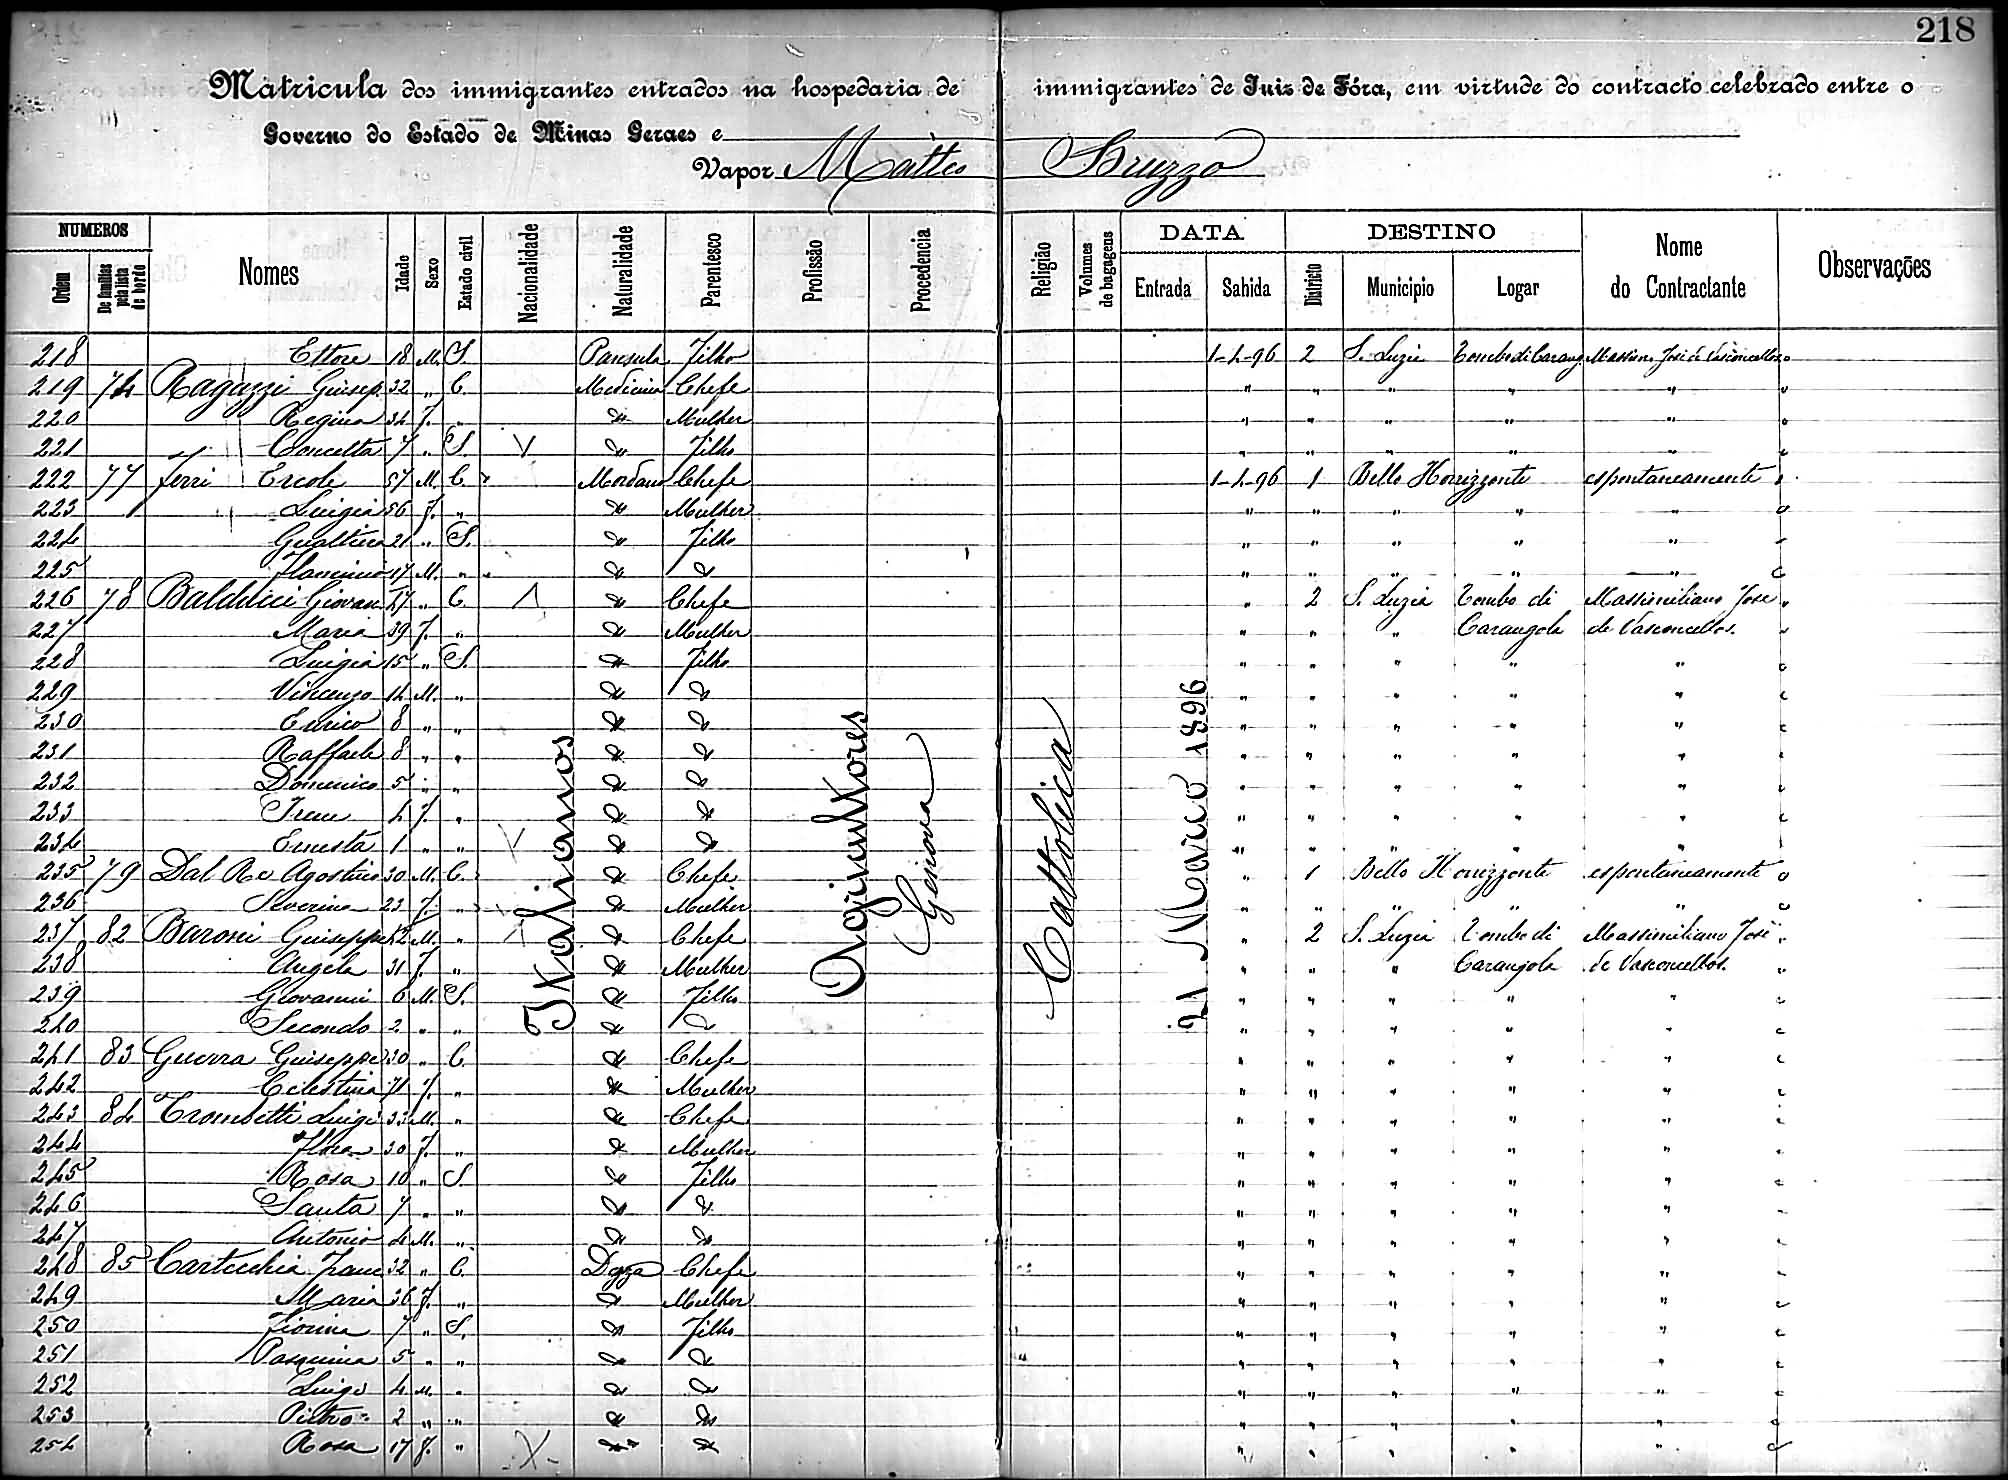 218
Matricula dos immigrantes entrados na hospedaria de immigrantes de Juiz de Fóra, em virtude do contracto celebrado entre o
Governo do Estado de Minas Geraes e
Vapor Matteo Bruzzo
NUMEROS DATA DESTINO
Ordem De familias pela lista de bordo Nomes Idade Sexo Estado civil Nacionalidade Naturalidade Parentesco Profissão Procedencia Religião Volumes de bagagens Entrada Sahida Districto Municipio Logar Nome do Contractante Observações
Italianos Agricultores Genova Cattolica 21 Março 1896
218 Ettore 18 M. S. Filho 1-4-96 2 S. Luzia Tombo di Carang. Massim. José de Vasconcellos
219 74 Ragazzi Giusep. 32 " C. Medicina Chefe " " " " "
220 Regina 34 F. " " Mulher " " " " "
221 Concetta 7 " S. " Filho " " " " "
222 77 Ferri Ercole 57 M. C. Mordano Chefe 1-4-96 1 Bello Horrizzonte espontaneamente
223 Luigia 56 F. " " Mulher " " " " "
224 21 " S. " Filho " " " " "
225 17 M. " " " " " " " "
226 78 Balducci Giovan. 47 " C. " Chefe " 2 S. Luzia Tombo di Massimiliano José
227 Maria 39 F. " " Mulher " " " Carangola de Vasconcellos.
228 Luigia 15 " S. " Filho " " " " "
229 Vincenzo 14 M. " " " " " " " "
230 Enrico 8 " " " " " " " " "
231 Raffaele 8 " " " " " " " " "
232 Domenico 5 " " " " " " " " "
233 Irene 4 F. " " " " " " " "
234 Ernesta 1 " " " " " " " " "
235 79 Dal Re Agostino 30 M. C. " Chefe " 1 Bello Horrizzonte espontaneamente
236 Severina 23 F. " " Mulher " " " " "
237 82 Baroni Giuseppe 42 M. " " Chefe " 2 S. Luzia Tombo di Massimiliano José
238 Angela 31 F. " " Mulher " " " Carangola de Vasconcellos.
239 Giovanni 6 M. S. " Filho " " " " "
240 Secondo 2 " " " " " " " " "
241 83 Guerra Giuseppe 30 " C. " Chefe " " " " "
242 Celestina F. " " Mulher " " " " "
243 84 Trombetti Luigi 33 M. " " Chefe " " " " "
244 30 F. " " Mulher " " " " "
245 Rosa 10 " S. " Filho " " " " "
246 Santa 7 " " " " " " " " "
247 Antonio 4 M. " " " " " " " "
248 85 Cartechia Franc. 32 " C. Dozza Chefe " " " " "
249 Maria 36 F. " " Mulher " " " " "
250 Fiorina 7 " S. " Filho " " " " "
251 Pasquina 5 " " " " " " " " "
252 Luigi 4 M. " " " " " " " "
253 Pietro 2 " " " " " " " " "
254 Rosa 17 F. " " " " " " " "